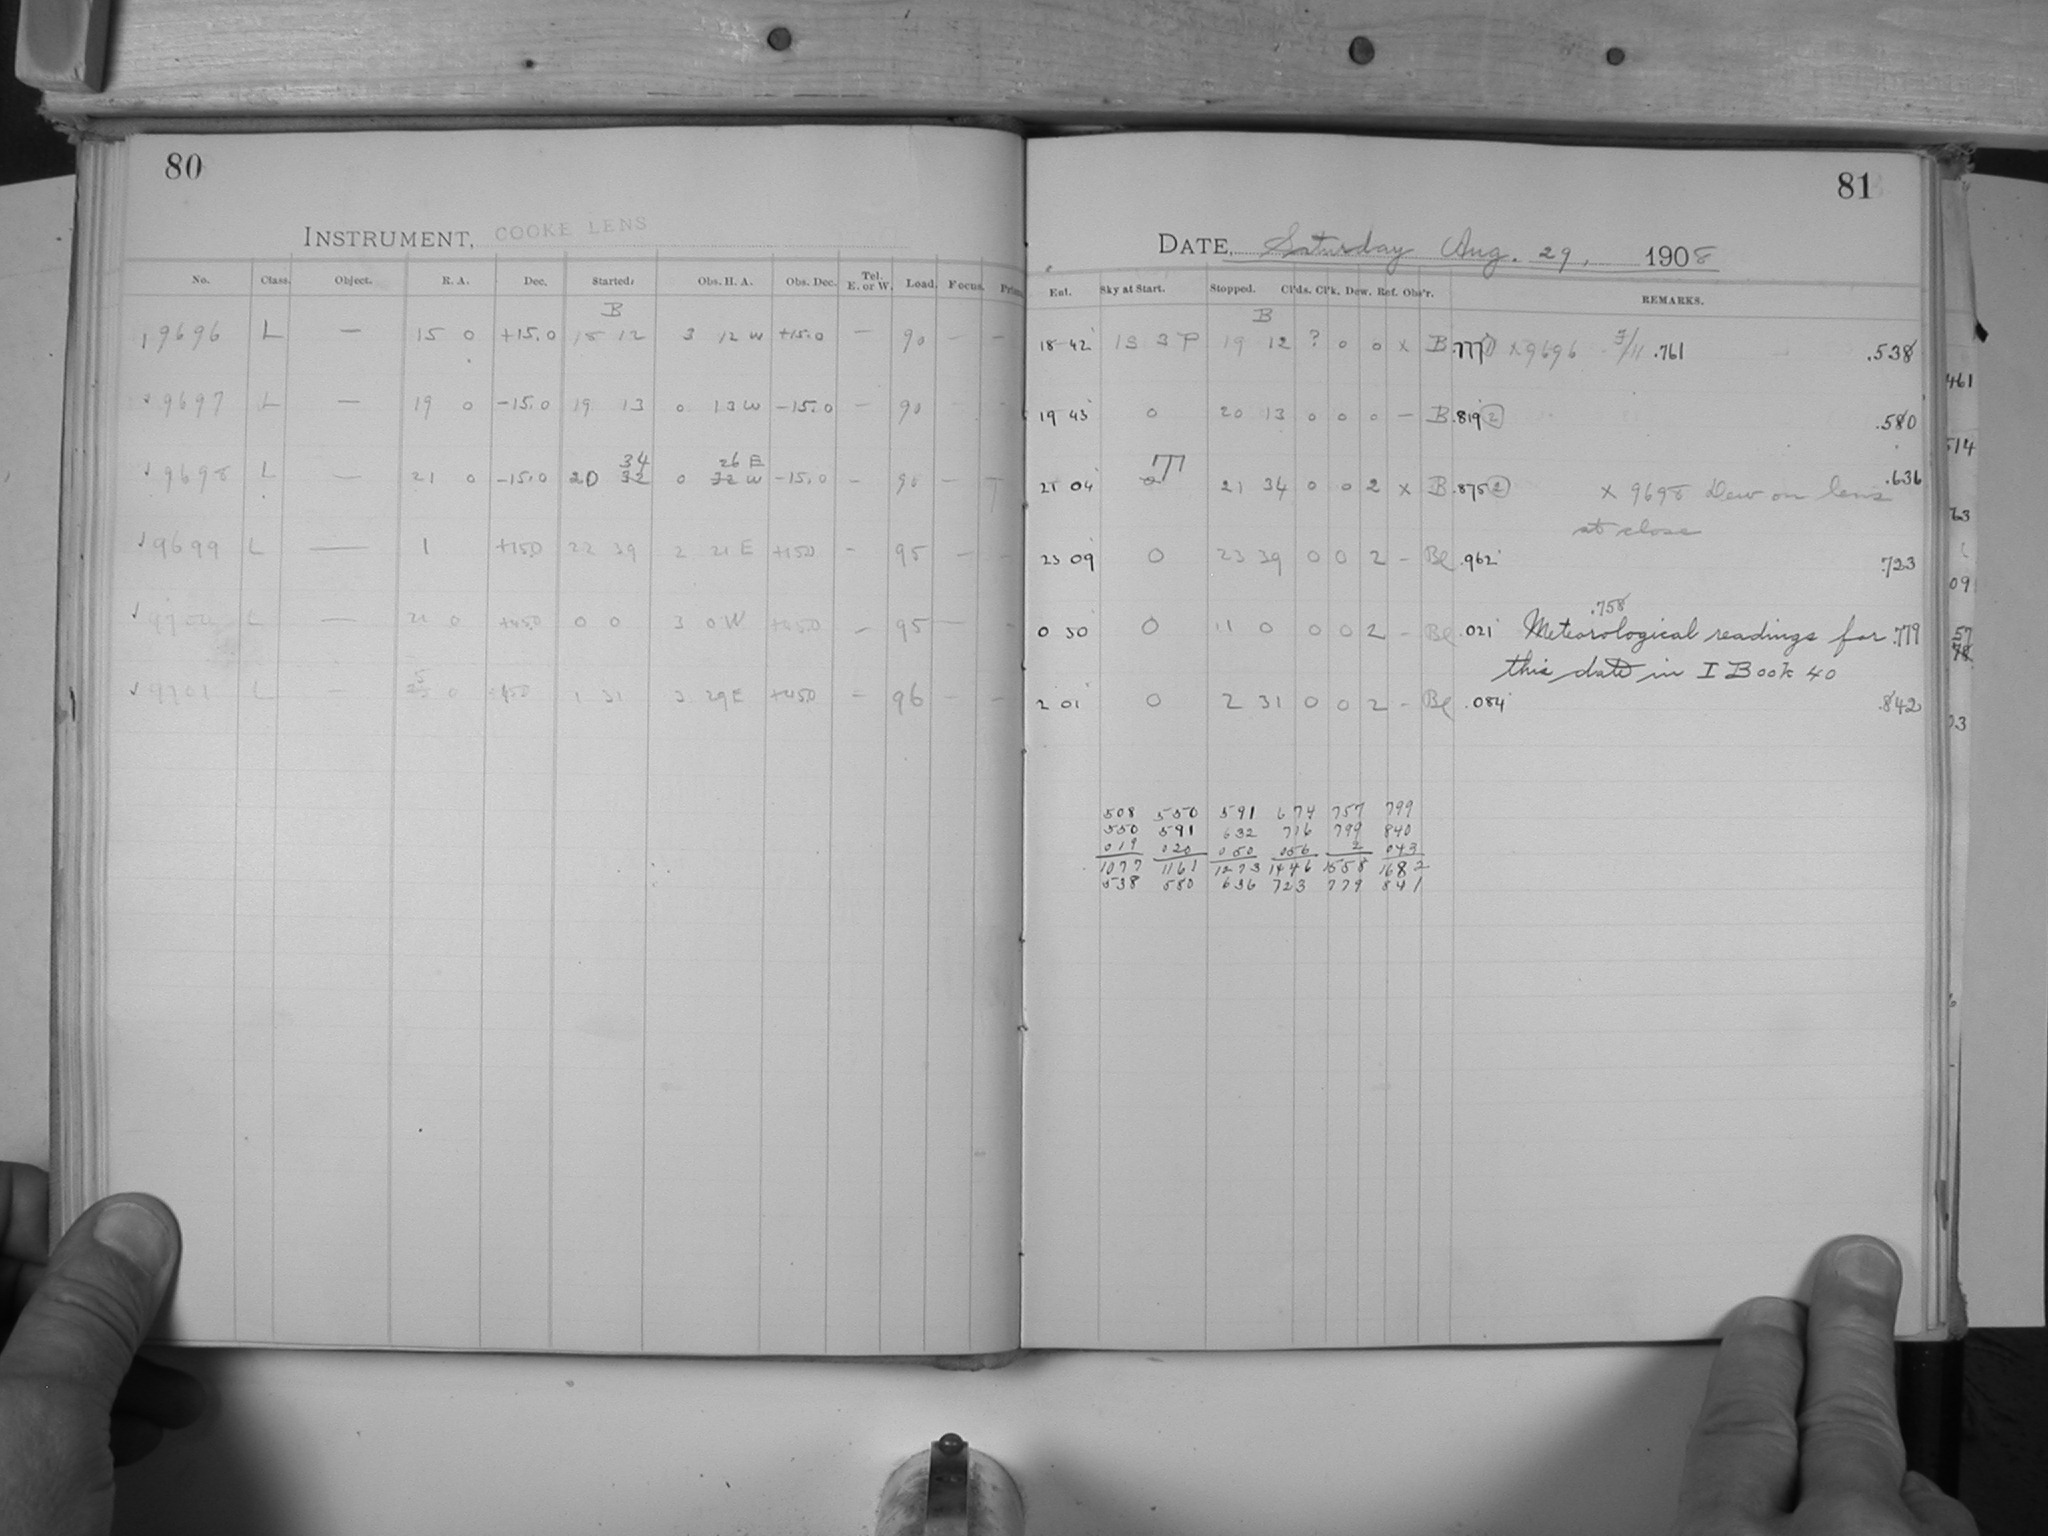 80
INSTRUMENT, COOKE LENS
No. Class. Object. R. A. Dec. Started. Obs. H. A. Obs. Dec. Tel. E. or W. Load. Focus. Prism.
B
9696 L — 15 0 +15.0 18 12 3 12 W +15.0 — 90 — —
9697 L — 19 0 -15.0 19 13 0 13 W -15.0 — 90
34 26 E
9698 L — 21 0 -15.0 20 32 0 32 W -15.0 — 90 —
9699 L — 1 +150 22 39 2 21 E +150 — 95 — —
L — 21 0 +450 0 0 3 0 W +450 — 95 —
9701 L — 0 1 31 3 29 E +450 — 96 — —
81
DATE, Saturday Aug. 29, 1908
Ent. Sky at Start. Stopped. Cl'ds. Cl'k. Dew. Ref. Obs'r. REMARKS.
B
18 42 1S 3P 19 12 ? 0 0 x B .777 x 9696 .761 .538
19 43 0 20 13 0 0 0 — B .819 (2) .580
21 04 21 34 0 0 2 x B .875 (2) x 9698 Dew on lens .636
at close
23 09 0 23 39 0 0 2 — Bl .962 .723
.758
0 30 0 11 0 0 0 2 — Bl .021 Meteorological readings for .779
this date in I Book 40
2 01 0 2 31 0 0 2 — Bl .084 .842
508 550 591 674 757 799
550 591 632 716 799 840
019 020 050 056 2 043
1077 1161 1273 1446 1558 1682
538 580 636 723 779 841
461
514
63
09
57
78
03